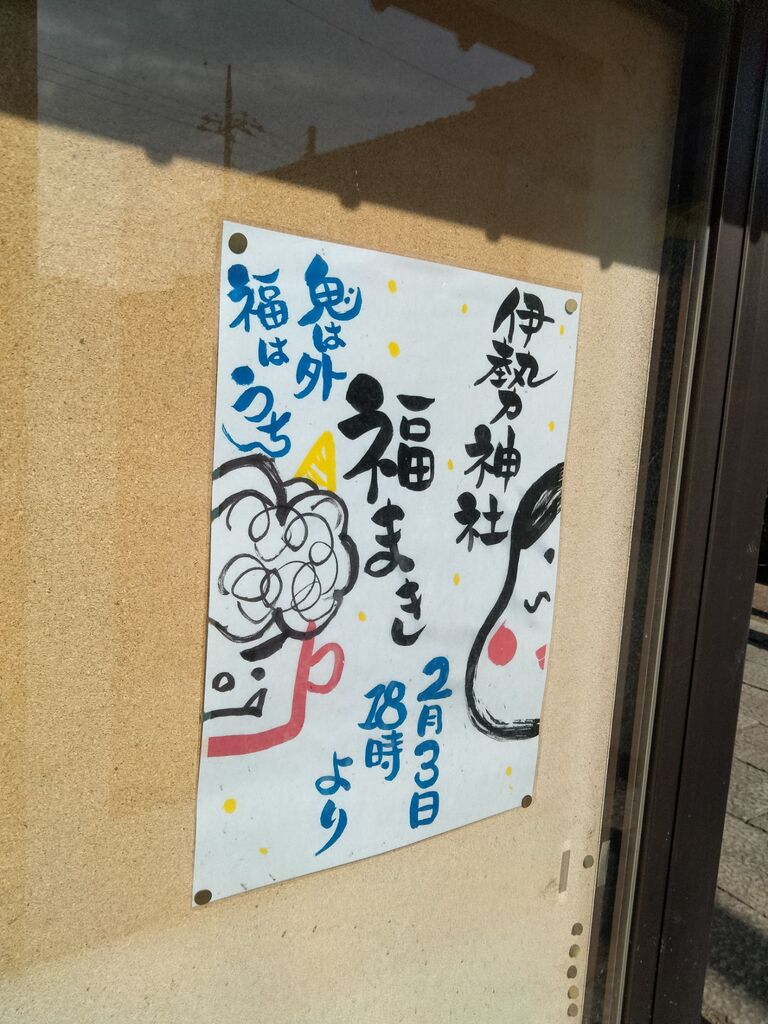 伊勢乃神社
福まき
2月3日
18時
より
鬼は外
福はうち